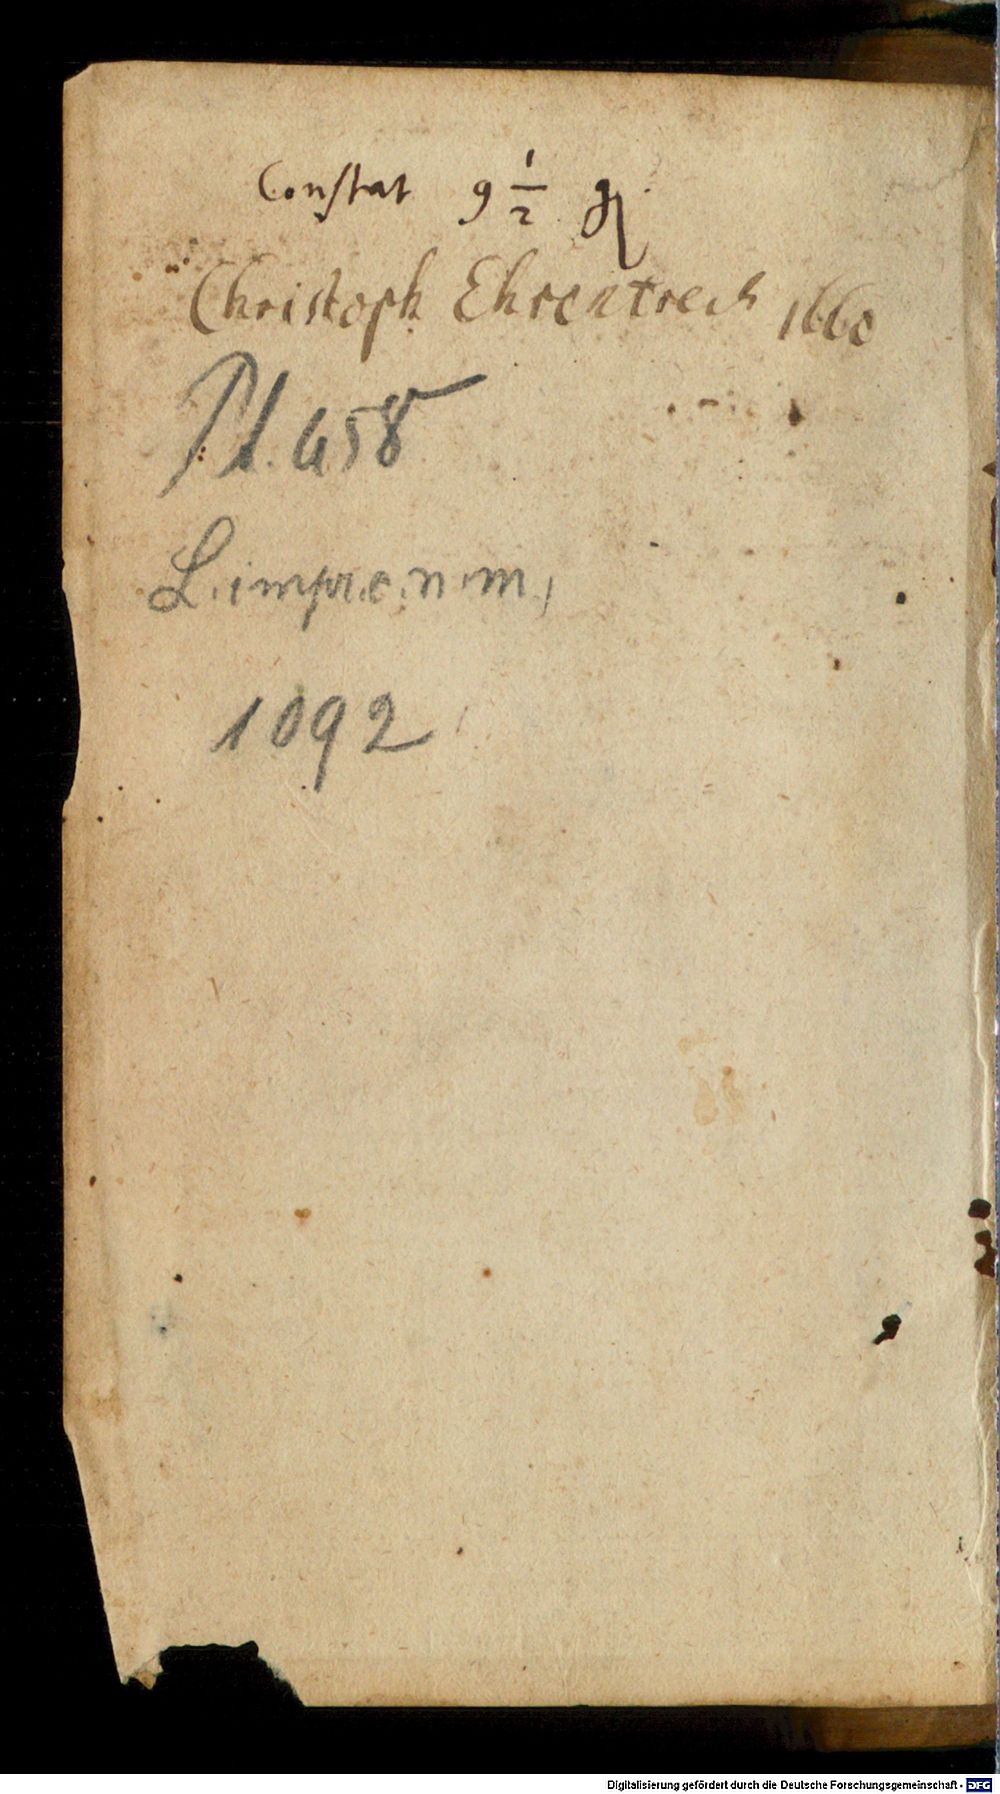 Constat 9 1/2 g
Christoph Ehrentreich 1660
Pl. 458
L. impr. c. n. m.
1092
Digitalisierung gefördert durch die Deutsche Forschungsgemeinschaft - DFG